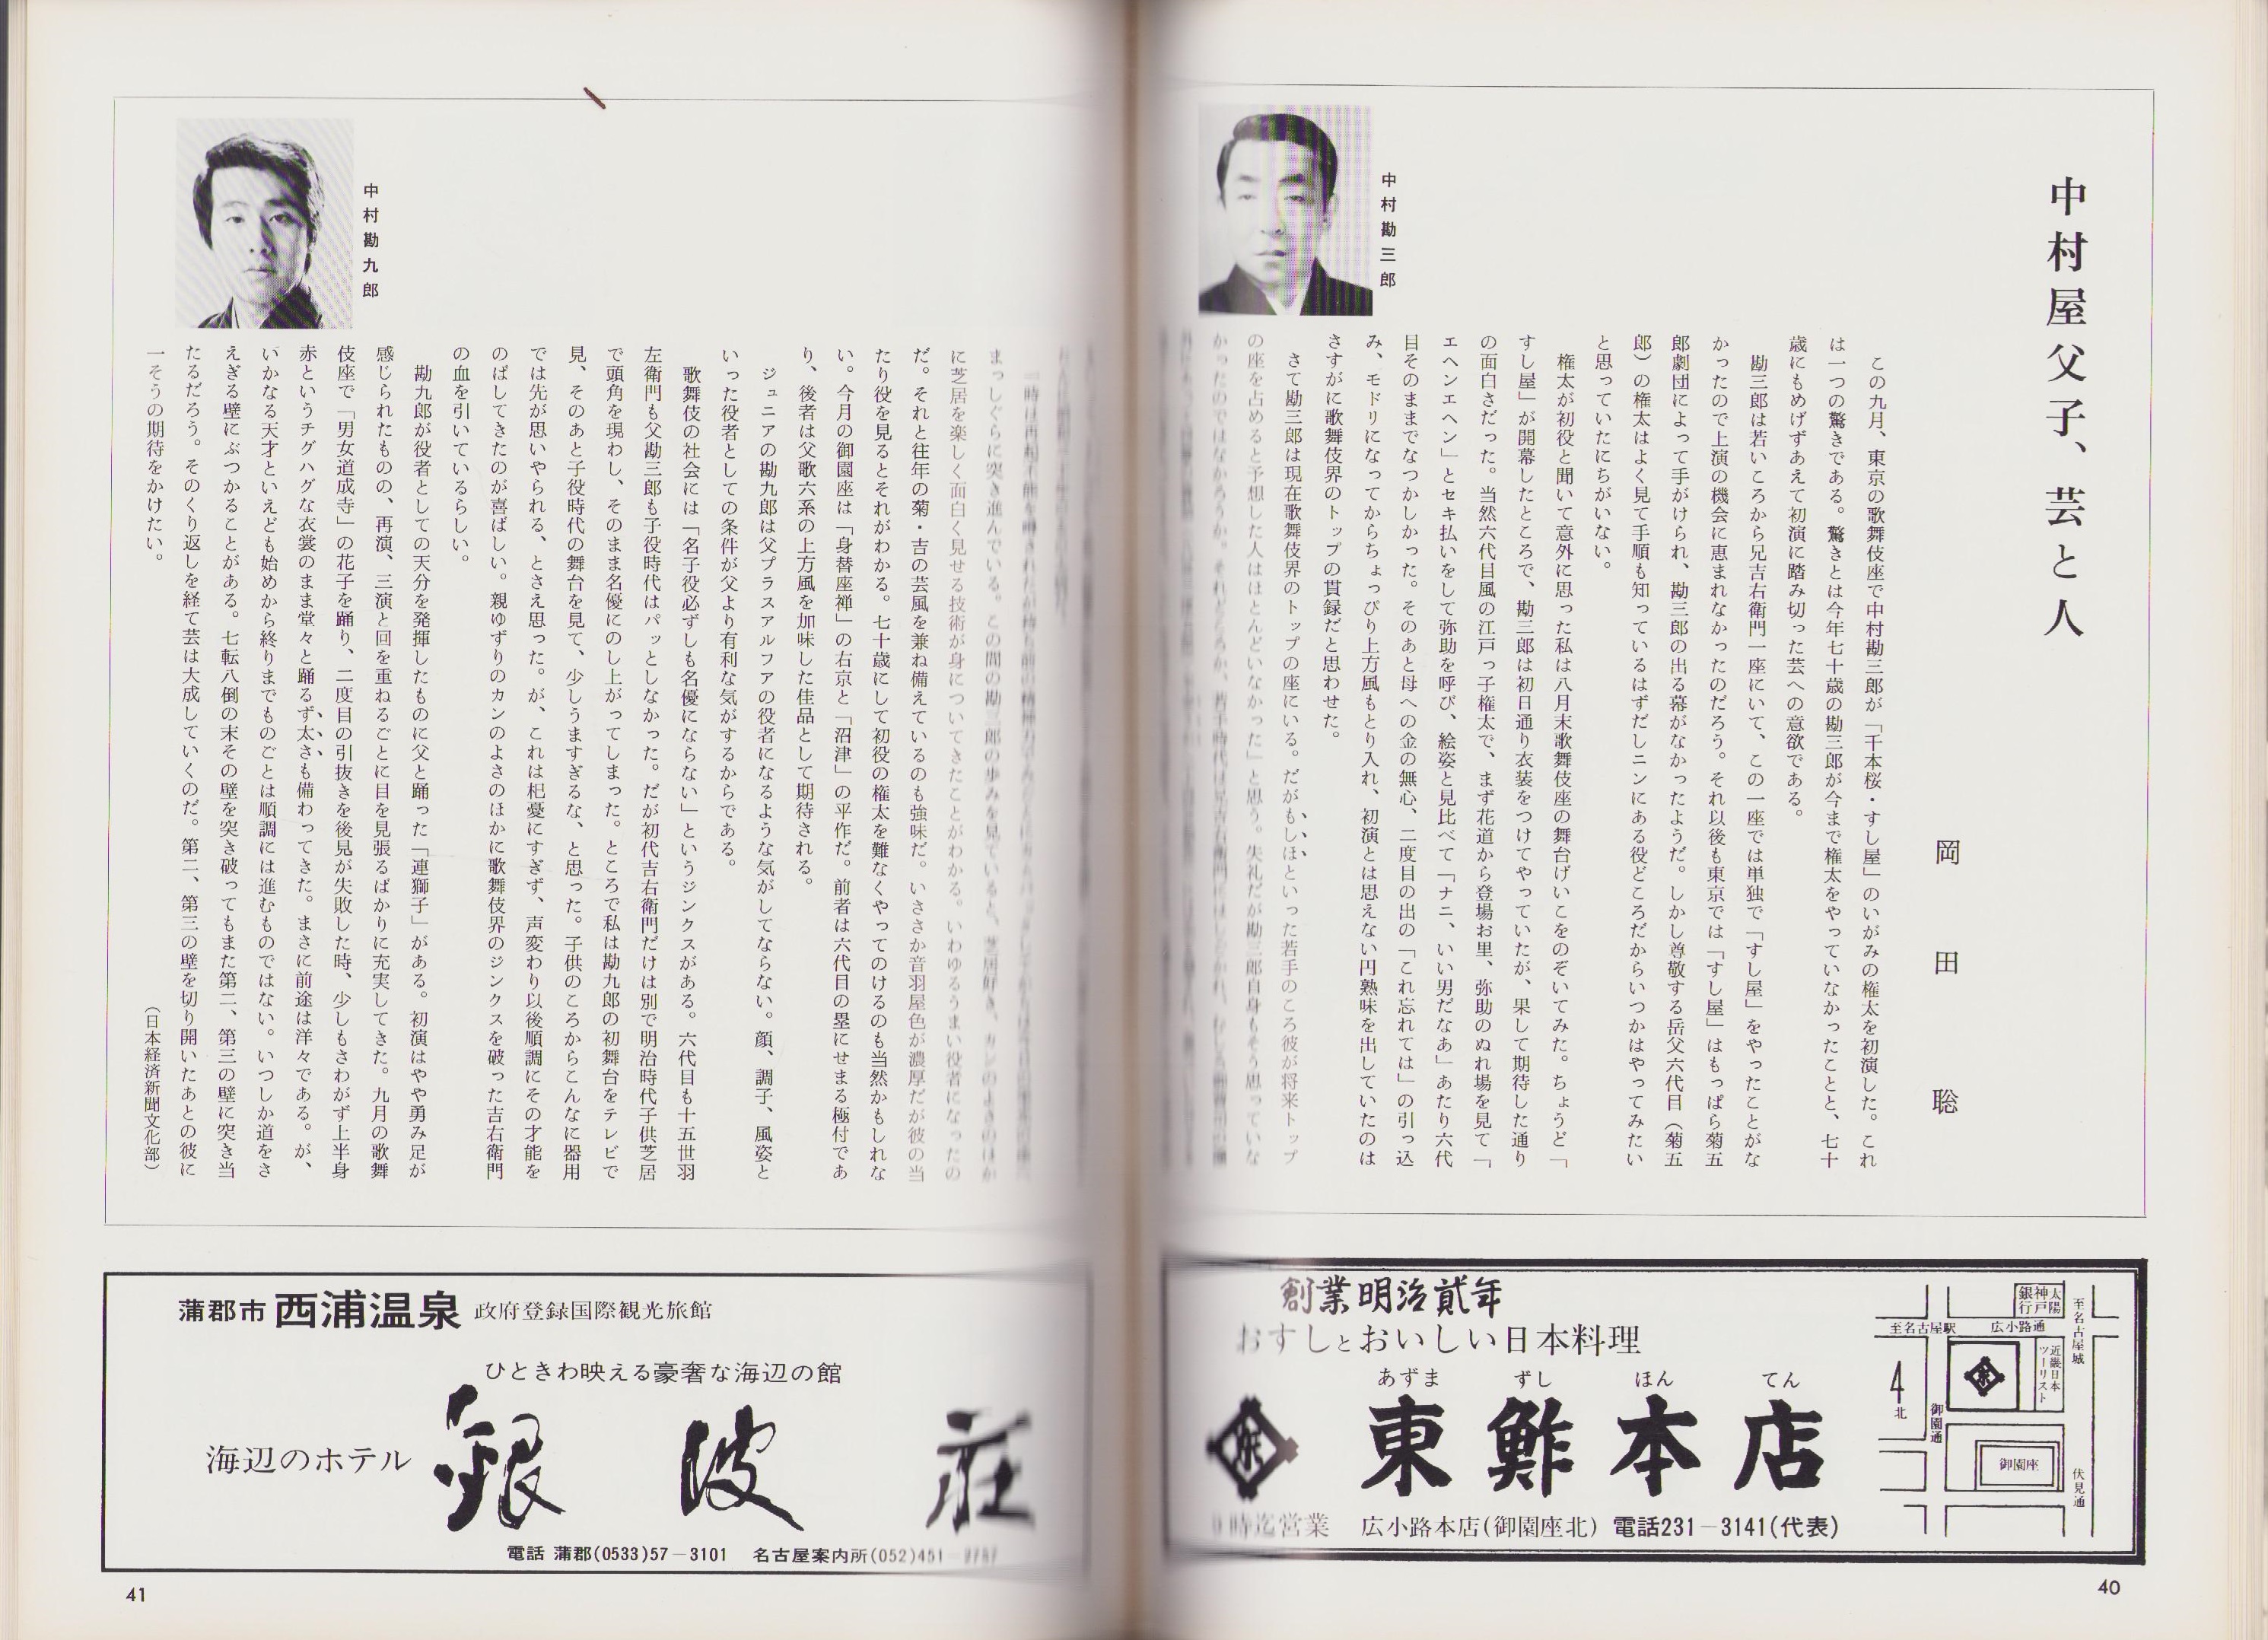 中村屋父子、芸と人
岡田聡
中村勘三郎
この九月、東京の歌舞伎座で中村勘三郎が「千本桜・すし屋」のいがみの権太を初演した。これ
は一つの驚きである。驚きとは今年七十歳の勘三郎が今まで権太をやっていなかったことと、七十
歳にもめげずあえて初演に踏み切った芸への意欲である。
勘三郎は若いころから兄吉右衛門一座にいて、この一座では単独で「すし屋」をやったことがな
かったので上演の機会に恵まれなかったのだろう。それ以後も東京では「すし屋」はもっぱら菊五
郎劇団によって手がけられ、勘三郎の出る幕がなかったようだ。しかし尊敬する岳父六代目（菊五
郎）の権太はよく見て手順も知っているはずだしニンにある役どころだからいつかはやってみたい
と思っていたにちがいない。
権太が初役と聞いて意外に思った私は八月末歌舞伎座の舞台げいこをのぞいてみた。ちょうど「
すし屋」が開幕したところで、勘三郎は初日通り衣装をつけてやっていたが、果して期待した通り
の面白さだった。当然六代目風の江戸っ子権太で、まず花道から登場お里、弥助のぬれ場を見て「
エヘンエヘン」とセキ払いをして弥助を呼び、絵姿と見比べて「ナニ、いい男だなあ」あたり六代
目そのままでなつかしかった。そのあと母への金の無心、二度目の出の「これ忘れては」の引っ込
み、モドリになってからちょっぴり上方風もとり入れ、初演とは思えない円熟味を出していたのは
さすがに歌舞伎界のトップの貫録だと思わせた。
さて勘三郎は現在歌舞伎界のトップの座にいる。だがもしほといった若手のころ彼が将来トップ
の座を占めると予想した人はほとんどいなかった」と思う。失礼だが勘三郎自身もそう思っていな
かったのではなかろうか。それどころか、若手時代は兄吉右衛門に
まっしぐらに突き進んでいる。この間の勘三郎の歩みを見ていると、芝居好き、カンのよさのほか
に芝居を楽しく面白く見せる技術が身についてきたことがわかる。いわゆるうまい役者になったの
だ。それと往年の菊・吉の芸風を兼ね備えているのも強味だ。いささか音羽屋色が濃厚だが彼の当
たり役を見るとそれがわかる。七十歳にして初役の権太を難なくやってのけるのも当然かもしれな
い。今月の御園座は「身替座禅」の右京と「沼津」の平作だ。前者は六代目の塁にせまる極付であ
り、後者は父歌六系の上方風を加味した佳品として期待される。
ジュニアの勘九郎は父プラスアルファの役者になるような気がしてならない。顔、調子、風姿と
いった役者としての条件が父より有利な気がするからである。
歌舞伎の社会には「名子役必ずしも名優にならない」というジンクスがある。六代目も十五世羽
左衛門も父勘三郎も子役時代はパッとしなかった。だが初代吉右衛門だけは別で明治時代子供芝居
で頭角を現わし、そのまま名優にのし上がってしまった。ところで私は勘九郎の初舞台をテレビで
見、そのあと子役時代の舞台を見て、少しうますぎるな、と思った。子供のころからこんなに器用
では先が思いやられる、とさえ思った。が、これは杞憂にすぎず、声変わり以後順調にその才能を
のばしてきたのが喜ばしい。親ゆずりのカンのよさのほかに歌舞伎界のジンクスを破った吉右衛門
の血を引いているらしい。
勘九郎が役者としての天分を発揮したものに父と踊った「連獅子」がある。初演はやや勇み足が
感じられたものの、再演、三演と回を重ねるごとに目を見張るばかりに充実してきた。九月の歌舞
伎座で「男女道成寺」の花子を踊り、二度目の引抜きを後見が失敗した時、少しもさわがず上半身
赤というチグハグな衣裳のまま堂々と踊るず太さも備わってきた。まさに前途は洋々である。が、
いかなる天才といえども始めから終りまでものごとは順調には進むものではない。いつしか道をさ
えぎる壁にぶつかることがある。七転八倒の末その壁を突き破ってもまた第二、第三の壁に突き当
たるだろう。そのくり返しを経て芸は大成していくのだ。第二、第三の壁を切り開いたあとの彼に
一そうの期待をかけたい。
（日本経済新聞文化部）
中村勘九郎
創業明治貳年
おすしとおいしい日本料理
あずま ずし ほん てん
東鮓本店
時迄営業 広小路本店(御園座北) 電話231－3141(代表)
太陽神戸銀行
至名古屋城
至名古屋駅
広小路通
近畿日本ツーリスト
北
御園通
御園座
伏見通
40
蒲郡市 西浦温泉 政府登録国際観光旅館
ひときわ映える豪奢な海辺の館
海辺のホテル 銀波荘
電話 蒲郡(0533)57－3101 名古屋案内所(052)451
41